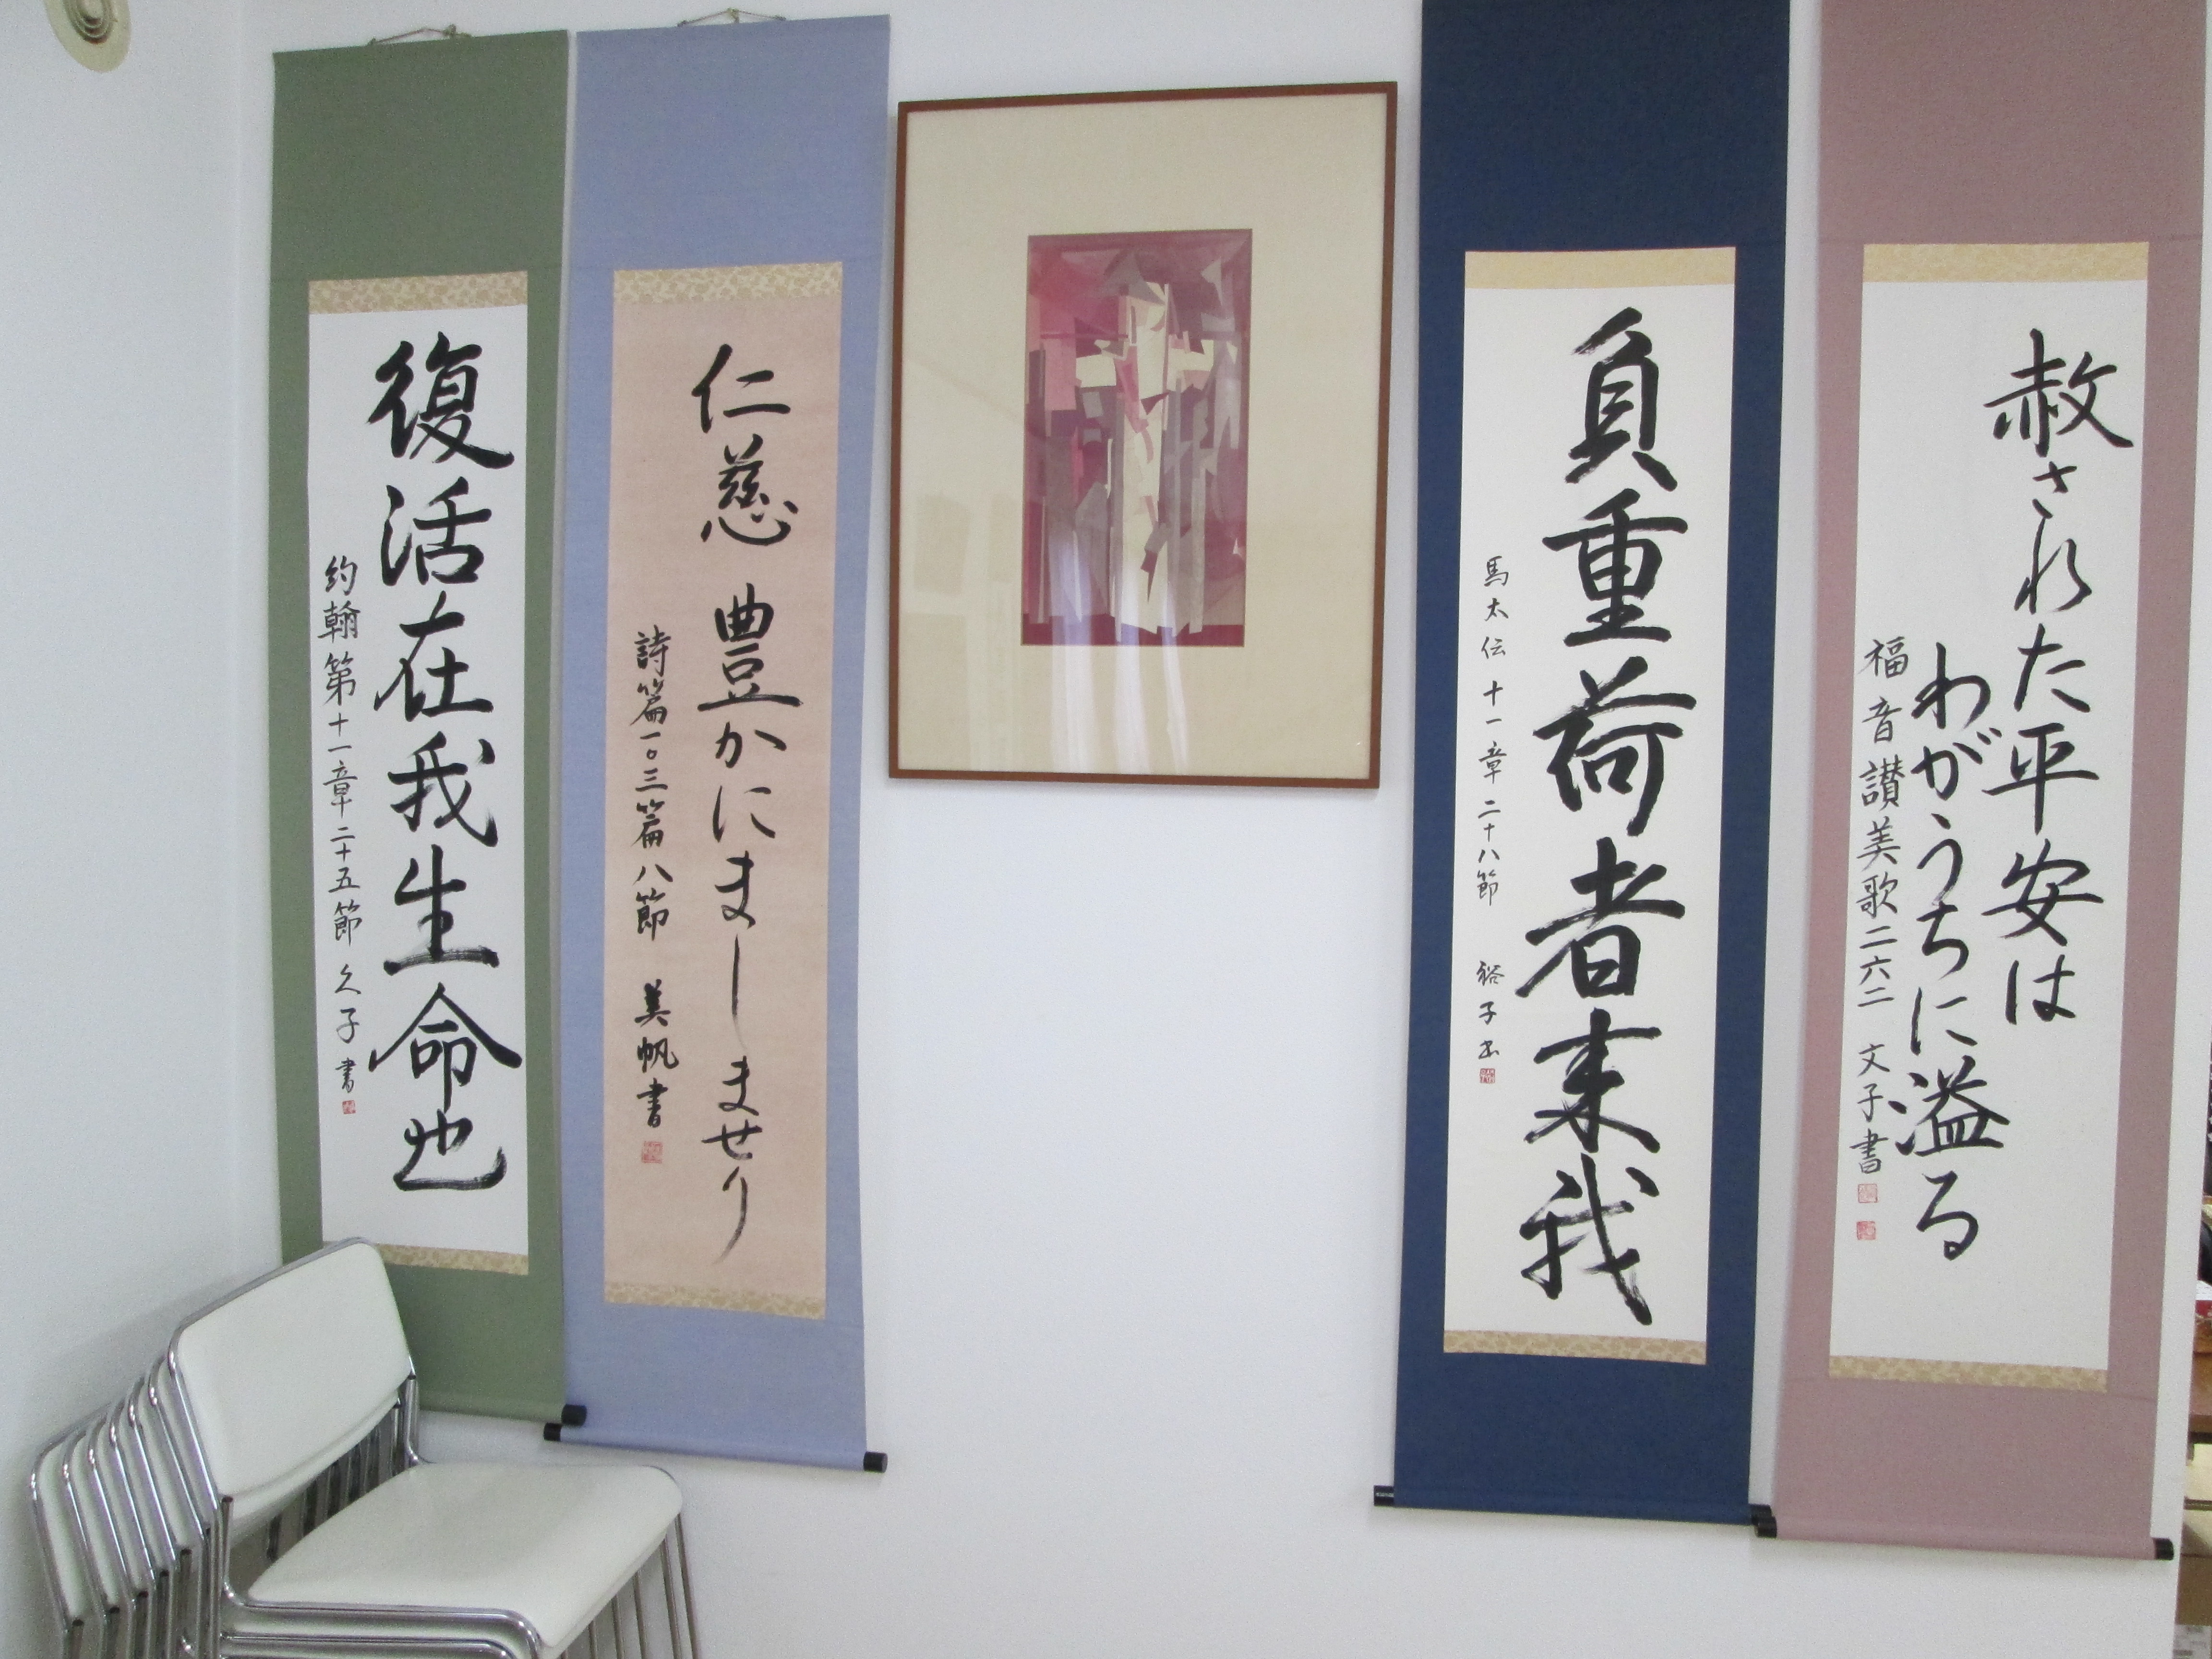 復活在我生命也
約翰第十一章二十五節 久子書
仁慈 豊かにましませり
詩篇一〇三篇八節 美帆書
負重荷者来我
馬太伝 十一章 二十八節 裕子書
赦された平安は
わがうちに溢る
福音讃美歌二六二 文子書